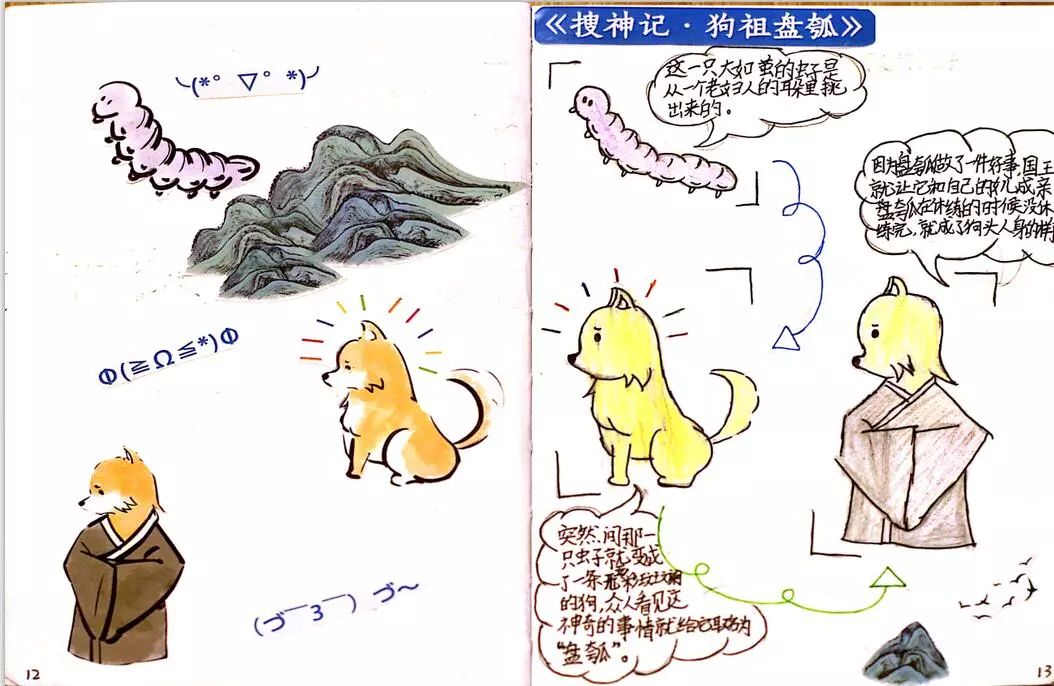 ╰(*°▽°*)╯
Φ(≧Ω≦*)Φ
(づ￣3￣)づ～
12
《搜神记·狗祖盘瓠》
这一只大如茧的虫子是
从一个老妇人的耳朵里挑
出来的。
因为盘瓠做了一件好事,国王
就让它和自己的女儿成亲
盘瓠在休练的时候没休
练完,就成了狗头人身的样
突然间那一
只虫子就变成
了一条
的狗,众人看见这
神奇的事情就给它取名为
“盘瓠”。
13